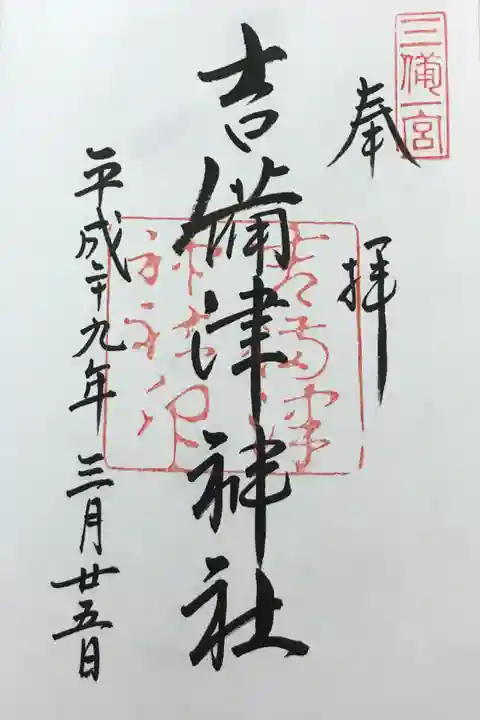 三備一宮
奉拝
吉備津神社
吉備津
神社
平成二十九年三月廿五日